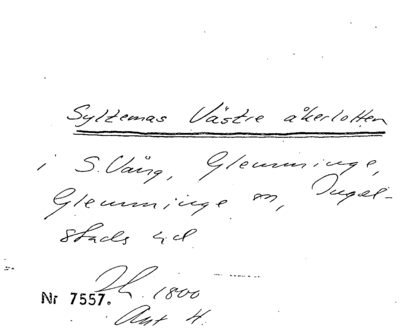 Syltemas Västre åkerlotten
i S. Vång, Glemminge,
Glemminge sn, Ingel-
stads hd
1800
Nr 7557.
Ant 4.